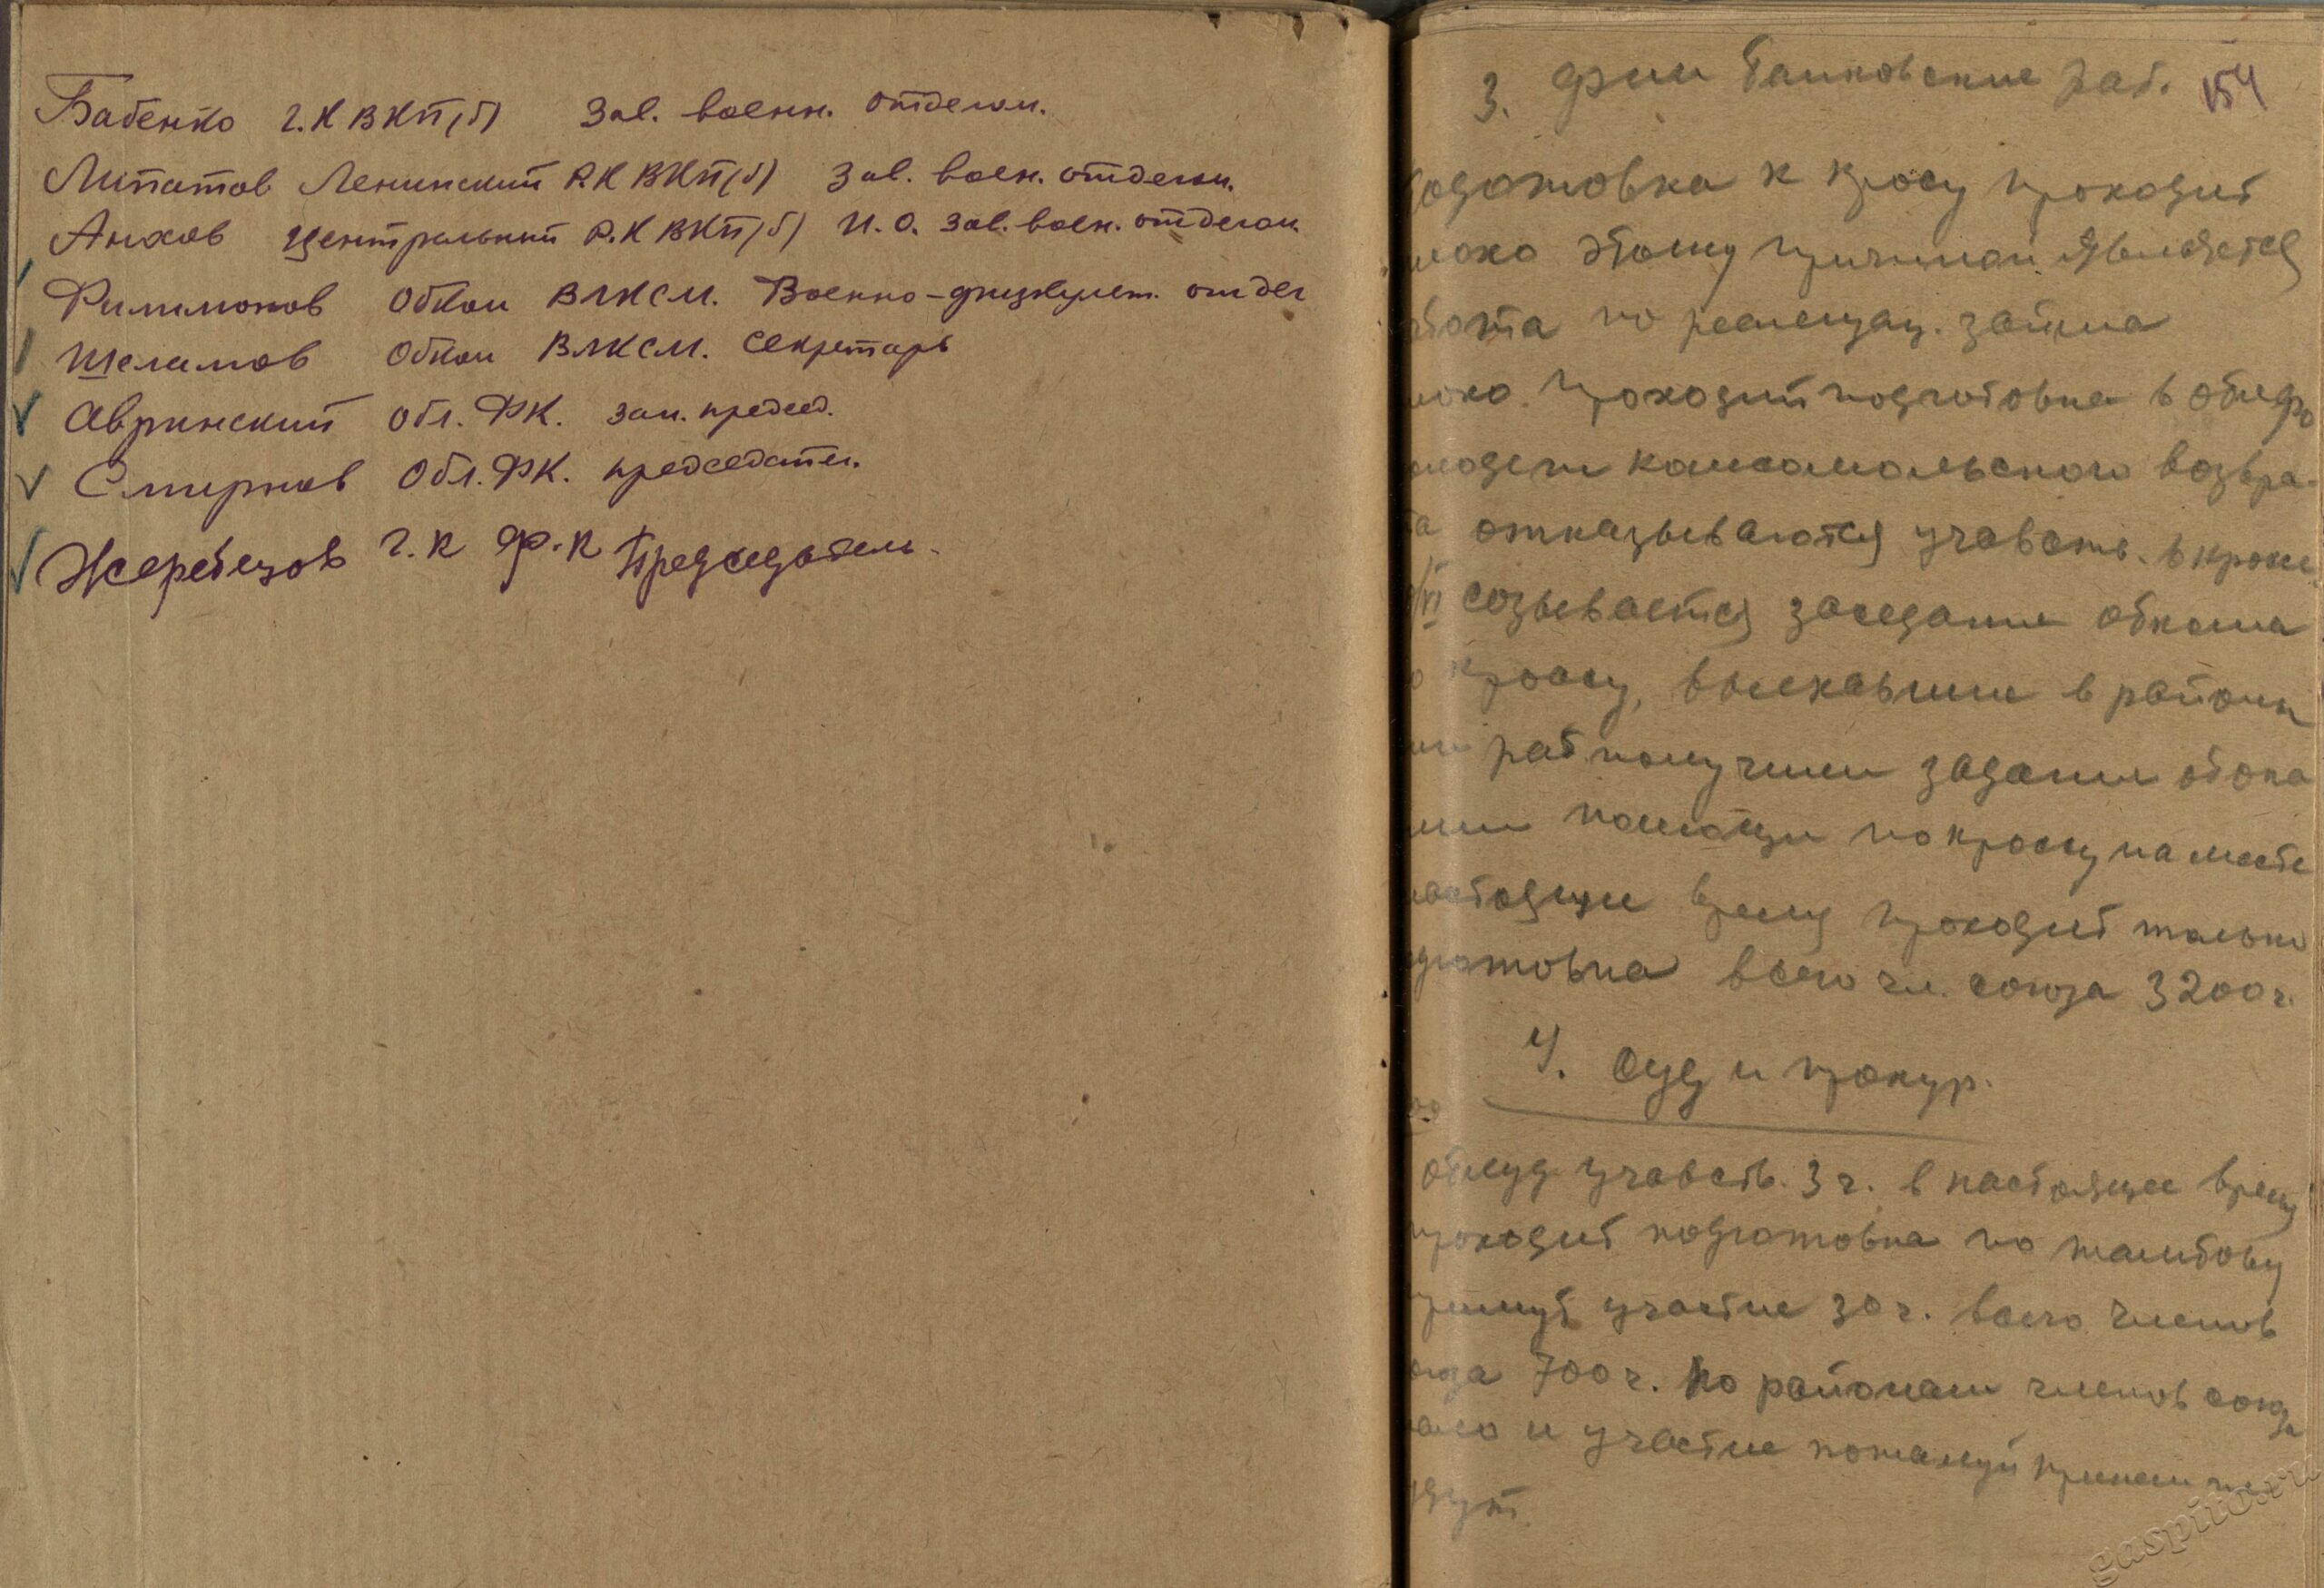 Бабенко г.К ВКП(б) Зав. военн. отделом.
Липатов Ленинский Р.К ВКП(б) Зав. воен. отделом.
Анхов Центральный Р.К ВКП(б) И.О. Зав. воен. отделом.
Филимонов Обком ВЛКСМ. Военно-физкульт. отдел
Шеламов Обком ВЛКСМ. Секретарь
Авринский Обл. ФК. зам. председ.
Смирнов Обл. ФК. председател.
Жеребцов г.К Ф.К Председатель.
3. Фин банковские раб. 154
одготовка к кросу проходит
лохо этому причиной является
бота по реализац. займа
лохо проходит подготовка в
молодежи комсомольского возра-
та отказываются учавств. в кросе
VI созывается заседание обкома
о кросу, выехавшие в районы
раб получили задание об ока
нии помощи по кросу на месте
настоящее время проходит только
дготовка всего чл. союза 3200 ч.
4. Суд и прокур.
облсуд учавств. 3 ч. в настоящее время
проходит подготовка по тамбову
примут участие 30 ч. всего членов
оюза 700 ч. По районам членов союза
мало и участие пожалуй прием не
дут.
gaspito.ru